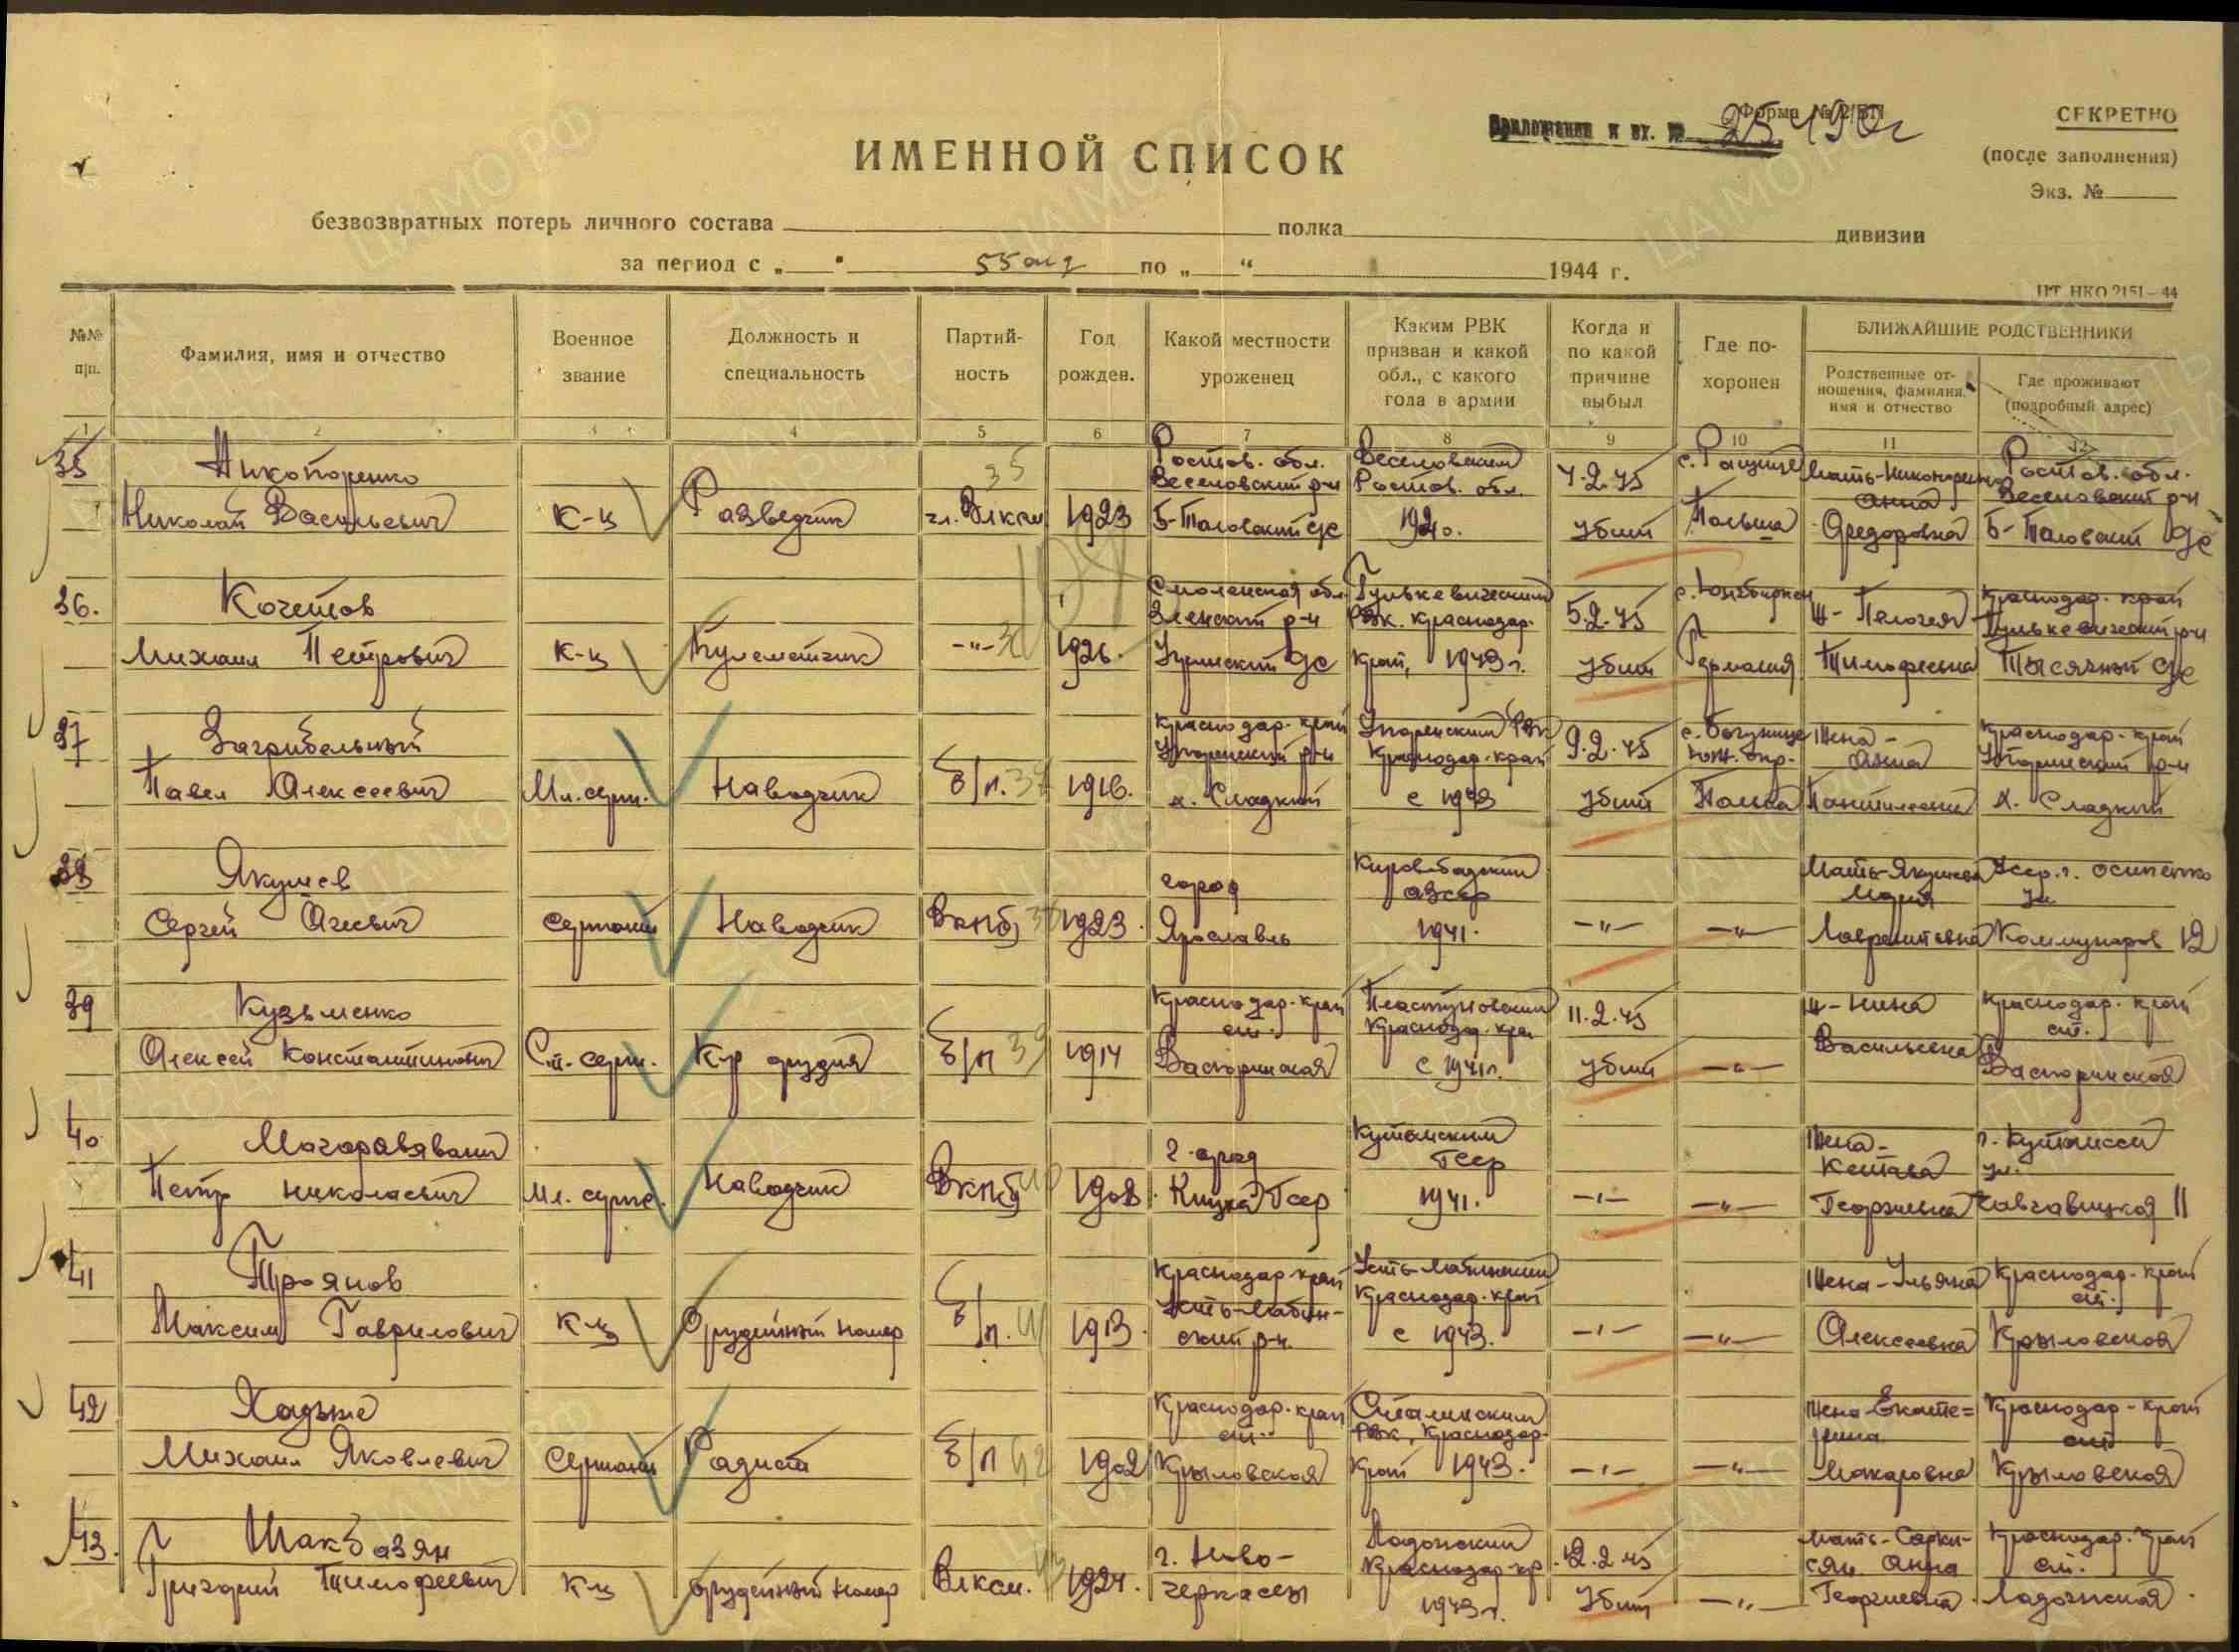 Форма № 2/БП
Приложение к вх. №
СЕКРЕТНО
(после заполнения)
Экз. №
ИМЕННОЙ СПИСОК
безвозвратных потерь личного состава полка дивизии
за период с „ “ 55 гв сд по „ “ 1944 г.
ЦТ НКО 2151—44
№№ п|п.
Фамилия, имя и отчество
Военное звание
Должность и специальность
Партий- ность
Год рожден.
Какой местности уроженец
Каким РВК призван и какой обл., с какого года в армии
Когда и по какой причине выбыл
Где по- хоронен
БЛИЖАЙШИЕ РОДСТВЕННИКИ
Родственные от- ношения, фамилия, имя и отчество
Где проживают (подробный адрес)
1 2 3 4 5 6 7 8 9 10 11 12
35 Никоноренко Ростов. обл. Веселовский 4.2.45 Мать-Никоноренко Ростов. обл.
Веселовский р-н Ростов. обл. Анна Веселовский р-н
Николай Васильевич к-ц Разведчик чл. Влксм 1923 убит Польша Федоровна
36. Кочетов Смоленская обл. Гулькевическим 5.2.45 ж- Пелогея Краснодар. край
РВК. Краснодар. Гулькевический р-н
Михаил Петрович к-ц Пулеметчик -"- 1926. край, 1943 г. убит Германия Тимофеевна Тысячный с/с
37 Загрибельный Краснодар. край Упорненский РВК 9.2.45 Жена - Краснодар. край
Упорненский р-н Краснодар. край Анна Упорненский р-н
Павел Алексеевич Мл. серж. Наводчик б/п. 1916. х. Сладкий с 1943 убит Польша х. Сладкий
38 Якушев город Кировобадский Мать-Якушева Усср. г. Осипенко
Азсср Мария ул.
Сергей Агеевич сержант Наводчик Вкпб 1923. Ярославль 1941. -"- -"- Лаврентьевна Коммунаров 12
39 Кузьменко Краснодар. край Пластуновский 11.2.45 ж- Нина Краснодар. край
ст. Краснодар. края ст.
Алексей Константинович Ст. серж. К-р орудия б/п 1914 Васюринская с 1941г. убит -"- Васильевна Васюринской
40 Кутаисским Жена - г. Кутаисси
Гсср Кетава ул.
Петр Николаевич Мл. серж. Наводчик Вкпб 1908. Гсср 1941. -"- -"- Георгиевна 11
41 Троянов Краснодар. край Усть-Лабинский Жена - Ульяна Краснодар. край
Усть-Лабин- Краснодар. край ст.
Максим Гаврилович к-ц Орудейный номер б/п. 1913. ский р-н. с 1943. -"- -"- Алексеевна Крыловской
42 Хадыже Краснодар. край Сталинским Жена - Екате= Краснодар. край
ст. РВК, Краснодар. рина ст
Михаил Яковлевич сержант Радист б/п 1902 Крыловская край 1943. -"- -"- Макаровна Крыловская
43. г. Ново- Ладожский 12.2.45 Мать - Сарки- Краснодар. край
Краснодар. кр. сян. Анна ст.
Григорий Тимофеевич к-ц орудейный номер Влксм. 1924. черкассы 1943 г. убит -"- Георгиевна. Ладожская.